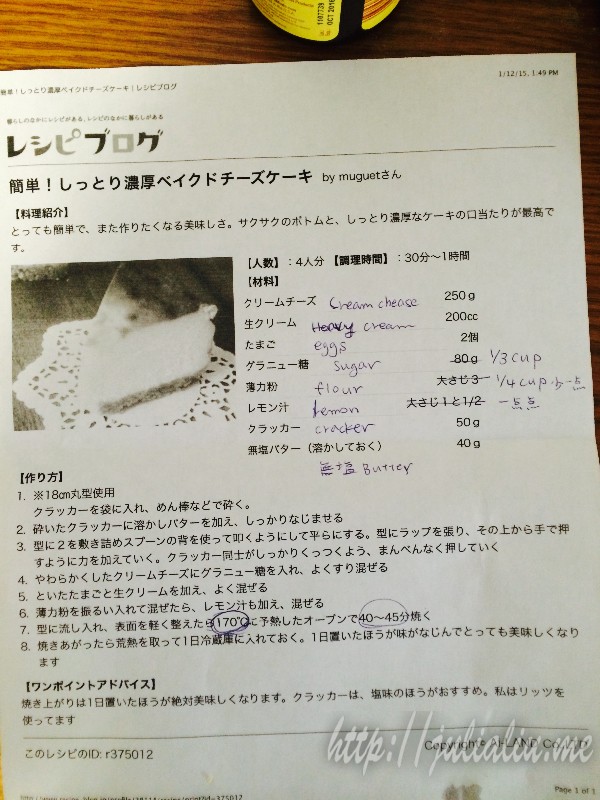 1107729
OCT 2016
1/12/15, 1:49 PM
簡単！しっとり濃厚ベイクドチーズケーキ | レシピブログ
暮らしのなかにレシピがある、レシピのなかに暮らしがある
レシピブログ
簡単！しっとり濃厚ベイクドチーズケーキ by muguetさん
【料理紹介】
とっても簡単で、また作りたくなる美味しさ。サクサクのボトムと、しっとり濃厚なケーキの口当たりが最高で
す。
【人数】：4人分 【調理時間】：30分〜1時間
【材料】
クリームチーズ Cream chease 250ｇ
生クリーム Heavy cream 200cc
たまご eggs 2個
グラニュー糖 sugar 80ｇ 1/3 cup
薄力粉 flour 大さじ3 1/4 cup 少一点
レモン汁 lemon 大さじ1と1/2 一点点
クラッカー cracker 50ｇ
無塩バター（溶かしておく） 40ｇ
無塩 Butter
【作り方】
1. ※18cm丸型使用
クラッカーを袋に入れ、めん棒などで砕く。
2. 砕いたクラッカーに溶かしバターを加え、しっかりなじませる
3. 型に２を敷き詰めスプーンの背を使って叩くようにして平らにする。型にラップを張り、その上から手で押
すように力を加えていく。クラッカー同士がしっかりくっつくよう、まんべんなく押していく
4. やわらかくしたクリームチーズにグラニュー糖を入れ、よくすり混ぜる
5. といたたまごと生クリームを加え、よく混ぜる
6. 薄力粉を振るい入れて混ぜたら、レモン汁も加え、混ぜる
7. 型に流し入れ、表面を軽く整えたら170℃に予熱したオーブンで40〜45分焼く
8. 焼きあがったら荒熱を取って1日冷蔵庫に入れておく。1日置いたほうが味がなじんでとっても美味しくなり
ます
【ワンポイントアドバイス】
焼き上がりは1日置いたほうが絶対美味しくなります。クラッカーは、塩味のほうがおすすめ。私はリッツを
使ってます
このレシピのID: r375012
Copyright© AI-LAND Co.,Ltd
http://julialiu.me
Page 1 of 1